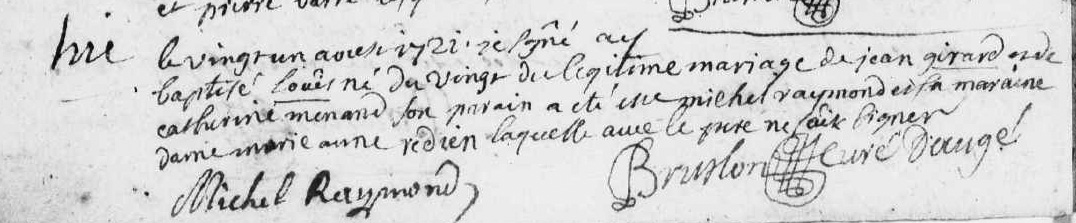 et pierre
le vingt un aoust 1721 je signé ay
baptisé Louis né du vingt du legitime mariage de jean girard et de
catherine menand son parain a été sr michel raymond et la maraine
dame marie anne redien laquelle avec le pere ne sait signer
Michel Raymond Bruslon Curé D'augé